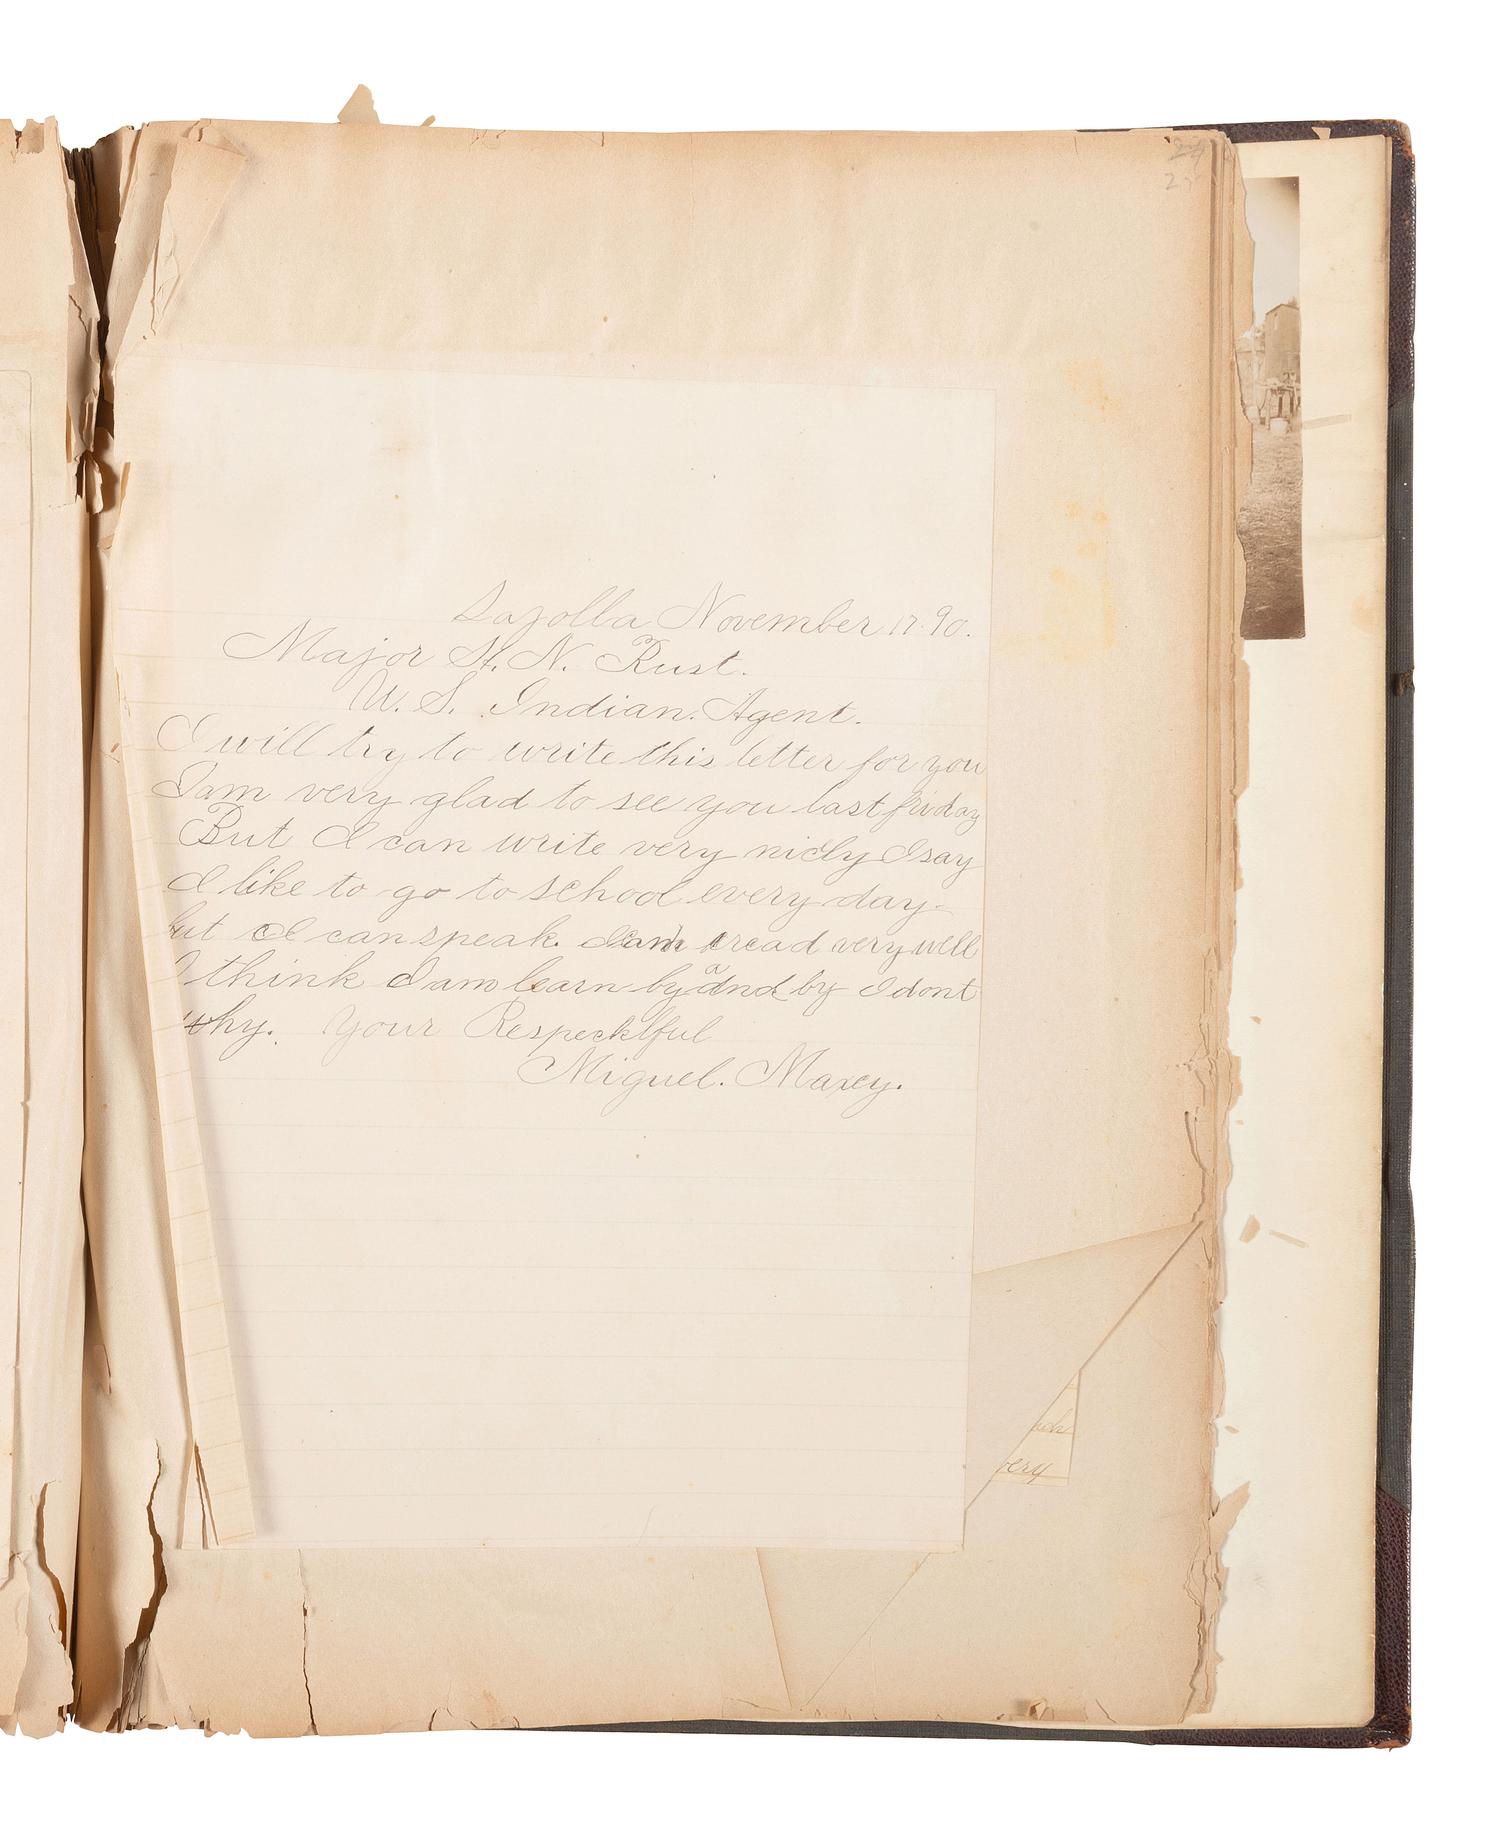 24
Lajolla November 17. 90.
Major H. N. Rust.
U. S. Indian. Agent.
I will try to write this letter for you
I am very glad to see you last friday
But I can write very nicly I say
I like to go to school every day
but I can speak. read very well
I think I am learn by and by I dont
why. Your Respecktful
Miguel. Maxey.
ery